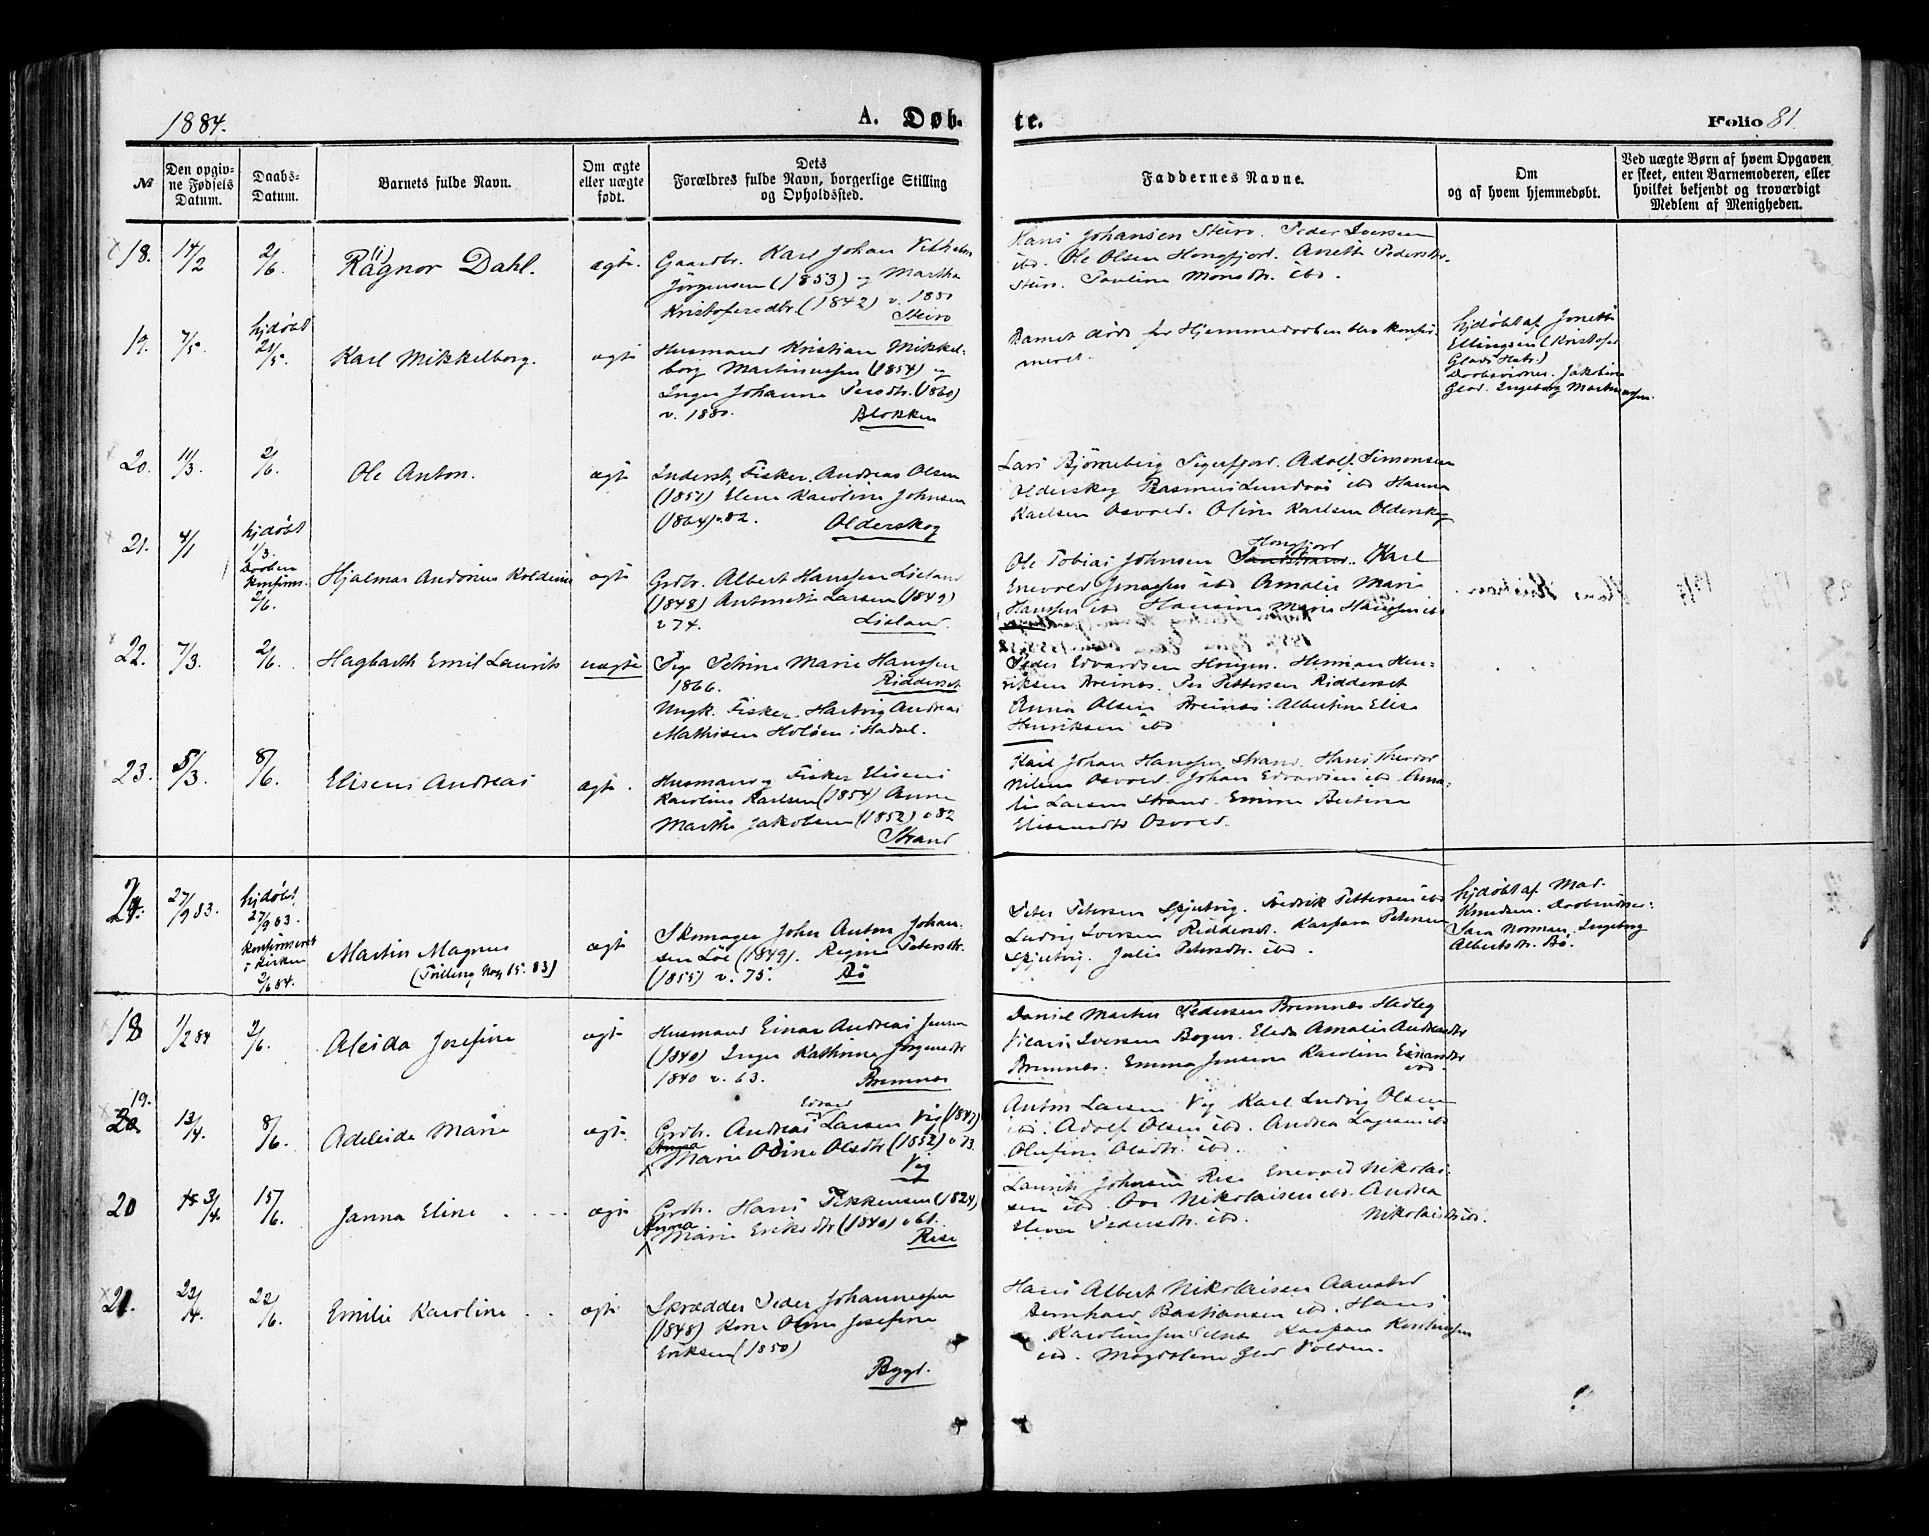 1884.
A. Døb-
te.
Folio 81.
№
Den opgiv-
ne Fødsels
Datum.
Daabs-
Datum.
Barnets fulde Navn.
Om ægte
eller uægte
født.
Dets
Forældres fulde Navn, borgerlige Stilling
og Opholdssted.
Faddernes Navne.
Om
og af hvem hjemmedøbt.
Ved uægte Børn af hvem Opgaven
er skeet, enten Barnemoderen, eller
hvilket bekjendt og troværdigt
Medlem af Menigheden.
18.
14/2
2/6.
Ragnor Dahl.
ægte
Gaardbr. Karl Johan
Jörgensen (1853) og Martha
Kristofersdtr (1842) v. 1880
Steiro
Hans Johansen Steiro. Peder Iversen
ibd. Ole Olsen Hongfjord. Anette Pedersdtr.
Steiro. Pauline Monsdtr. ibd.
19.
7/5.
hjdøbt
21/5.
Karl Mikkelborg.
ægte
Husmand Kristian Mikkel-
borg Martinussen (1854) og
Inger Johanna Persdtr. (1860)
v. 1880.
Blokken
Barnet døde før Hjemmedaaben blev konfir-
meret.
hjdøbt af Jonette
Ellingsen (Kristofer
Glads Hstr.)
Daabsvidner. Jakobine
Glad. Ingeborg Martinussen.
20.
11/3.
2/6.
Ole Anton.
ægte
Inderst, Fisker. Andreas Olsen
(1857) Elene Karoline Johnsen
(1864) v. 82.
Olderskog
Lars Björneberg Sigerfjord. Adolf Simonsen
Olderskog Rasmus ibd Hanna
Karlsen Osvold. Oline Karlsen Olderskog
21.
4/1
hjdøbt
1/3.
Daaben
konfirm.
2/6.
Hjalmar Andonius Koldevin
ægte
Grdbr. Albert Hanssen Liland
(1848) Antonette Larsen (1849)
v 74.
Liland.
Hongfjord
Ole Tobias Johnsen Sandstrand. Karl
Enevold Jenssen ibd Amalie Marie
Hanssen ibd Hansine Marie Hanssen ibd
22.
7/3.
2/6.
Hagbarth Emil Laurits
uægte
Pige Petrine Marie Hanssen
1866.
Ridderset
Ungk. Fisker. Hartvig Andreas
Mathisen Holöen i Hadsel.
Peder Edvardsen Hongen. Herman Hen-
riksen Breines. Per Pettersen Ridderset
Anna Olsen Breines. Albertine Elise
Henriksen ibd
23.
5/3.
8/6.
Eliseus Andreas
ægte.
Husmand og Fisker Eliseus
Karolius Karlsen (1854) Anne
Marthe Jakobsen (1852) v 82
Strand
Karl Johan Hanssen Strand. Hans Theodor
Nilsen Osvold. Johan Edvardsen ibd. Ama-
lie Larsen Strand. Emma Bertine
Eliseusdtr Osvold.
24.
27/9 83.
hjdøbt
27/9 83.
Konfirmeret
i Kirken
2/6 84.
Martin Magnus
(Trilling No 15. 83)
ægte
Skomager John Anton Johan-
sen Löe (1849). Regine Petersdtr.
(1855) v. 75.
Bö
Peter Petersen Skjelvig. Fredrik Pettersen ibd
Ludvig Iversen Ridderset. Kaspara Petersen
Skjelvig. Julie Petersdtr. ibd.
hjdøbt af Mad.
Knudsen. Daabsvidner:
Sara Norman, Ingeborg
Albertsdtr. Bö.
18
1/2 84
2/6.
Aleida Josefine
ægte
Husmand Einar Andreas Jensen
(1840) Inger Kathrine Jörgensdtr
1840 v. 63.
Bremnes
Daniel Martin Pedersen Bremnes Hedley
Hilario Iversen Bogen. Eleda Amalie Andreasdtr
Bremnes. Emma Jensen Karoline Einarsdtr
ibd.
19.
20
13/4.
8/6.
Adeleide Marie
ægte
Edvard
Grdbr. Andreas Larsen Vig (1847)
Anna
Marie Oline Olsdtr (1852) v 73.
Vig
Anton Larsen Vig Karl Ludvig Olsen
ibd. Adolf Olsen ibd. Andrea Lagesen ibd
Olufine Olsdtr. ibd.
20
3/4.
15/6.
Janna Eline
ægte
Grdbr. Hans Pekkensen (1824)
Anna
Marie Eriksdtr (1840) v 61.
Rise
Laurits Johnsen Rise Enevold Nikolai-
sen ibd. Ove Nikolaisen ibd. Andrea
Elena Pedersdtr. ibd. Nikolaisdtr ibd.
21.
22/4.
22/6.
Emilie Karoline
ægte
Skrædder Peder Johannessen
(1848) Kone Oline Josefine
Eriksen (1850)
Bygd.
Hans Albert Nikolaisen Aanstad
Bernhard Bastiansen ibd. Hans
Karolinssen Kaspara
ibd. Magdalena Glad Volden.